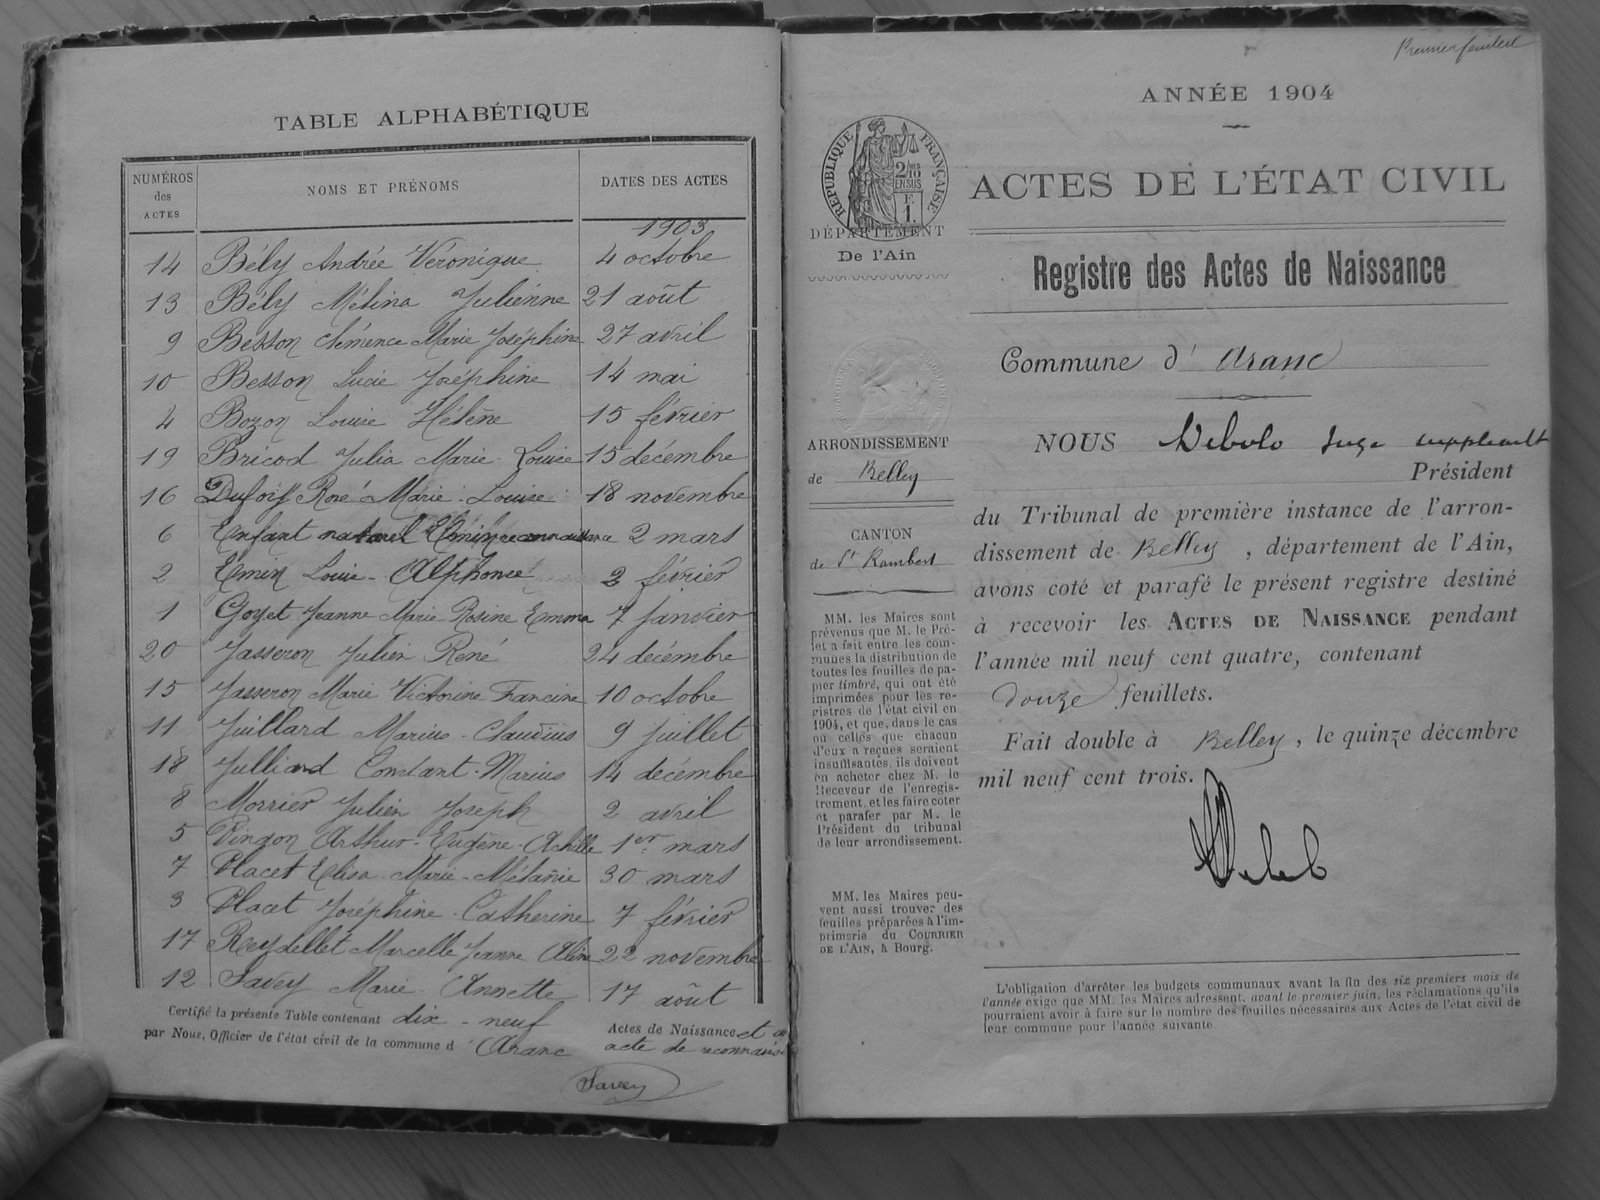 TABLE ALPHABÉTIQUE
NUMÉROS des ACTES
NOMS ET PRÉNOMS
DATES DES ACTES
1903
14 Bély Andrée Véronique 4 octobre
13 Bély Mélina Julienne 21 août
9 Besson Clémence Marie Joséphine 27 avril
10 Besson Lucie Joséphine 14 mai
4 Bozon Louise Hélène 15 février
19 Bricod Julia Marie Louise 15 décembre
16 Rose Marie Louise 18 novembre
6 Enfant naturel Emin reconnaissance 2 mars
2 Emin Louis-Alphonse 2 février
1 Goyet Jeanne Marie Rosine Emma 7 janvier
20 Jasseron Julien René 24 décembre
15 Jasseron Marie Victorine Francine 10 octobre
11 Juillard Marius-Claudius 9 juillet
18 Julliard Constant-Marius 14 décembre
8 Morrier Julien Joseph 2 avril
5 Pingon Arthur-Eugène-Achille 1er mars
7 Placet Elisa-Marie-Mélanie 30 mars
3 Placet Joséphine-Catherine 7 février
17 Reydellet Marcelle Jeanne 22 novembre
12 Savey Marie-Annette 17 août
Certifié la présente Table contenant dix-neuf Actes de Naissance et
par Nous, Officier de l'état civil de la commune d'Aranc acte de
Savey
Premier feuillet
ANNÉE 1904
RÉPUBLIQUE FRANÇAISE
2/10 EN SUS
F. 1.
DÉPARTEMENT
De l'Ain
ACTES DE L'ÉTAT CIVIL
Registre des Actes de Naissance
Commune d'Aranc
ARRONDISSEMENT
de Belley
CANTON
de St Rambert
MM. les Maires sont
prévenus que M. le Pré-
fet a fait entre les com-
munes la distribution de
toutes les feuilles de pa-
pier timbré, qui ont été
imprimées pour les re-
gistres de l'état civil en
1904, et que, dans le cas
où celles que chacun
d'eux a reçues seraient
insuffisantes, ils doivent
en acheter chez M. le
Receveur de l'enregis-
trement, et les faire coter
et parafer par M. le
Président du tribunal
de leur arrondissement.
MM. les Maires peu-
vent aussi trouver des
feuilles préparées à l'im-
primerie du COURRIER
DE L'AIN, à Bourg.
NOUS Juge suppléant
Président
du Tribunal de première instance de l'arron-
dissement de Belley, département de l'Ain,
avons coté et parafé le présent registre destiné
à recevoir les ACTES DE NAISSANCE pendant
l'année mil neuf cent quatre, contenant
douze feuillets.
Fait double à Belley, le quinze décembre
mil neuf cent trois.
L'obligation d'arrêter les budgets communaux avant la fin des six premiers mois de
l'année exige que MM. les Maires adressent, avant le premier juin, les réclamations qu'ils
pourraient avoir à faire sur le nombre des feuilles nécessaires aux Actes de l'état civil de
leur commune pour l'année suivante.